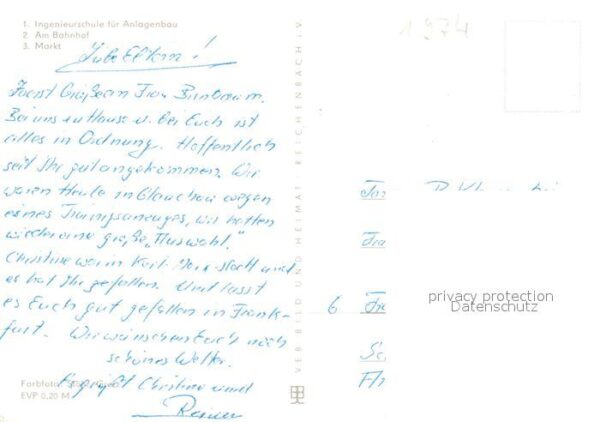 1. Ingenieurschule für Anlagenbau
2. Am Bahnhof
3. Markt
1974
Liebe Eltern!
Zuerst Grüße an Frau Birnbaum.
Bei uns zu Hause u. bei Euch ist
alles in Ordnung. Hoffentlich
seit Ihr gut angekommen. Wir
waren Heute in Glauchau wegen
eines Trainingsanzuges, wir hatten
wieder eine große „Auswahl."
Christine war in Karl-Marx-Stadt und
es hat Ihr gefallen. Und lasst
es Euch gut gefallen in Frank-
furt. Wir wünschen Euch noch
schönes Wetter.
Es grüßt Christine und
Rainer
Farbfoto:
EVP 0,20 M
VEB BILD UND HEIMAT REICHENBACH i. V.
6
privacy protection
Datenschutz